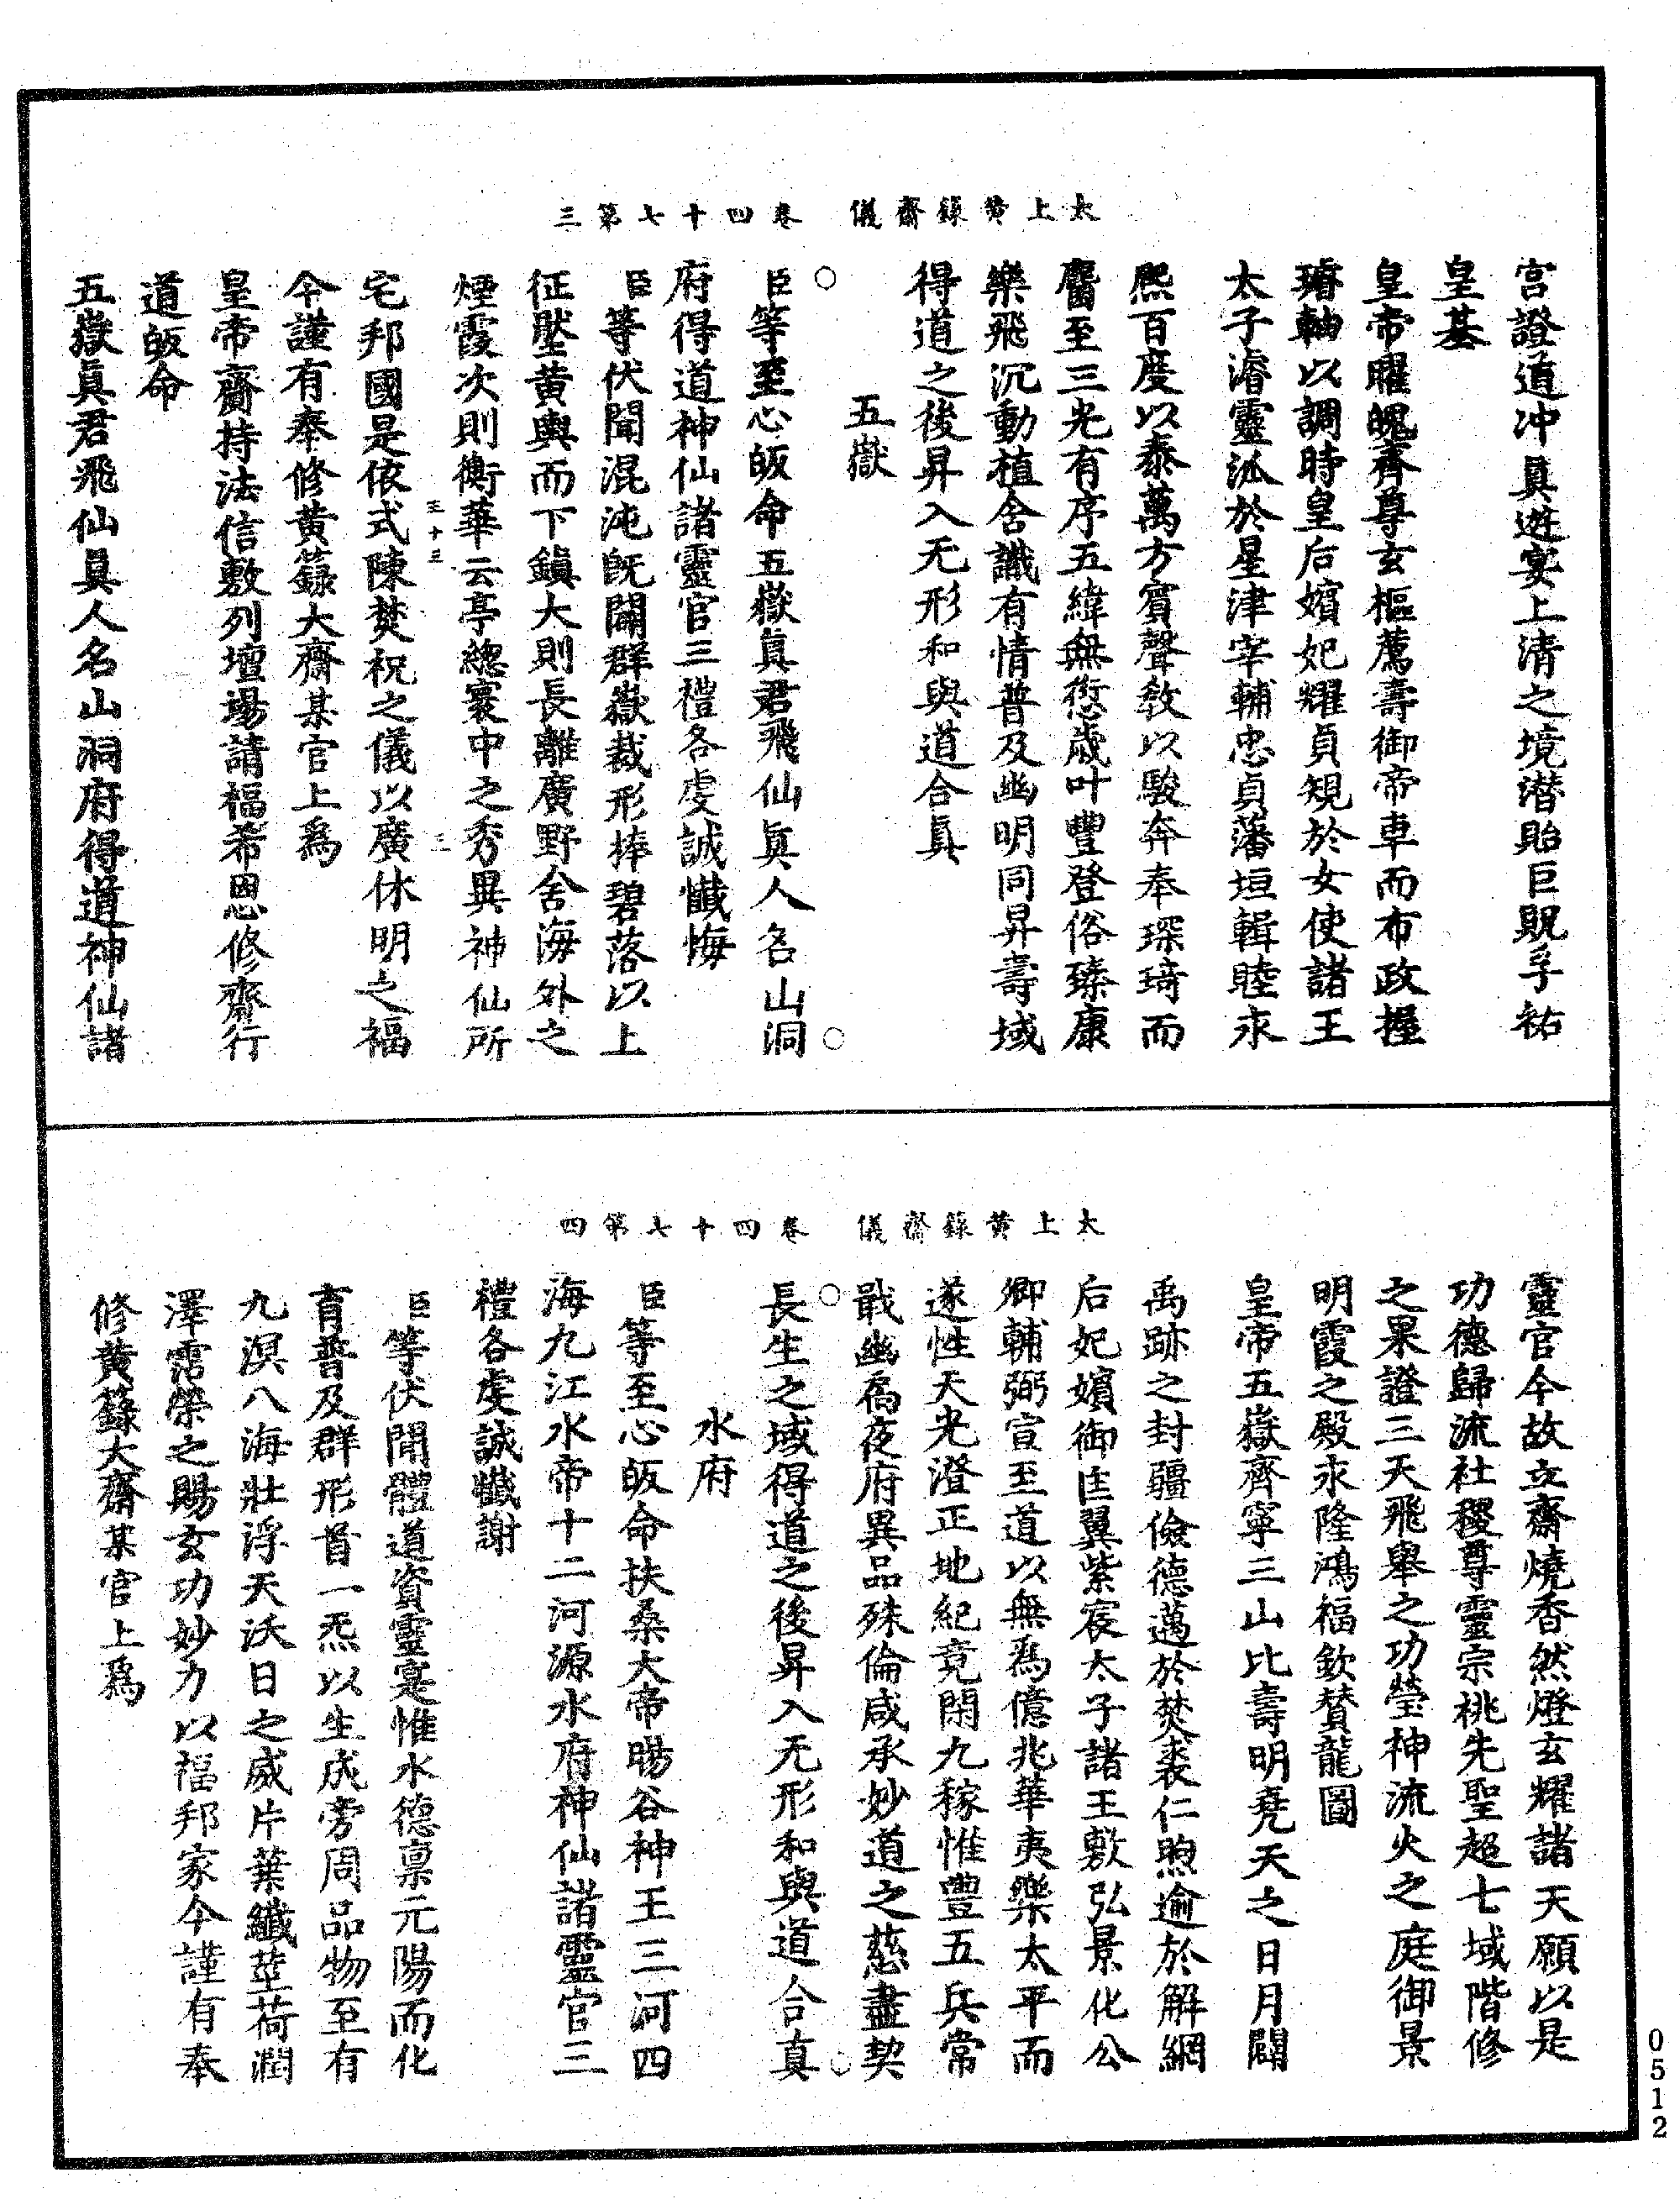 太上黃籙齋儀　卷四十七第三
宮證道冲真遊宴上清之境潛貽巨貺孚祐
皇基
皇帝曜魄齊尊玄樞薦壽御帝車而布政握
璿軸以調時皇后嬪妃耀貞規於女使諸王
太子濬靈派於星津宰輔忠貞藩垣輯睦永
熙百度以泰萬方賓聲教以駿奔奉琛琦而
麕至三光有序五緯無愆歲叶豐登俗臻康
樂飛沉動植含識有情普及幽明同昇壽域
得道之後昇入无形和與道合真
五嶽
臣等至心皈命五嶽真君飛仙真人名山洞
府得道神仙諸靈官三禮各虔誠懺悔
臣等伏聞混沌既開群嶽裁形捧碧落以上
征壓黃輿而下鎮大則長離廣野含海外之
煙霞次則衡華云亭總寰中之秀異神仙所
三十三
宅邦國是依式陳焚祝之儀以廣休明之福
今謹有奉修黃籙大齋某官上爲
皇帝齋持法信敷列壇場請福希恩修齋行
道皈命
五嶽真君飛仙真人名山洞府得道神仙諸
太上黃籙齋儀　卷四十七第四
靈官今故立齋燒香然燈玄耀諸天願以是
功德歸流社稷尊靈宗祧先聖超七域階修
之果證三天飛舉之功瑩神流火之庭御景
明霞之殿永隆鴻福欽贊龍圖
皇帝五嶽齊寧三山比壽明堯天之日月闢
禹跡之封疆儉德邁於焚裘仁煦逾於解網
后妃嬪御匡翼紫宸太子諸王敷弘景化公
卿輔弼宣至道以無爲億兆華夷樂太平而
遂性天光澄正地紀竟閑九稼惟豐五兵常
戢幽扃夜府異品殊倫咸承妙道之慈盡契
長生之域得道之後昇入无形和與道合真
水府
臣等至心皈命扶桑大帝暘谷神王三河四
海九江水帝十二河源水府神仙諸靈官三
禮各虔誠懺謝
臣等伏聞體道資靈寔惟水德禀元陽而化
育普及群形首一炁以生成旁周品物至有
九溟八海壯浮天沃日之威片葉纖莖荷潤
澤霑榮之賜玄功妙力以福邦家今謹有奉
修黃籙大齋某官上爲
0512